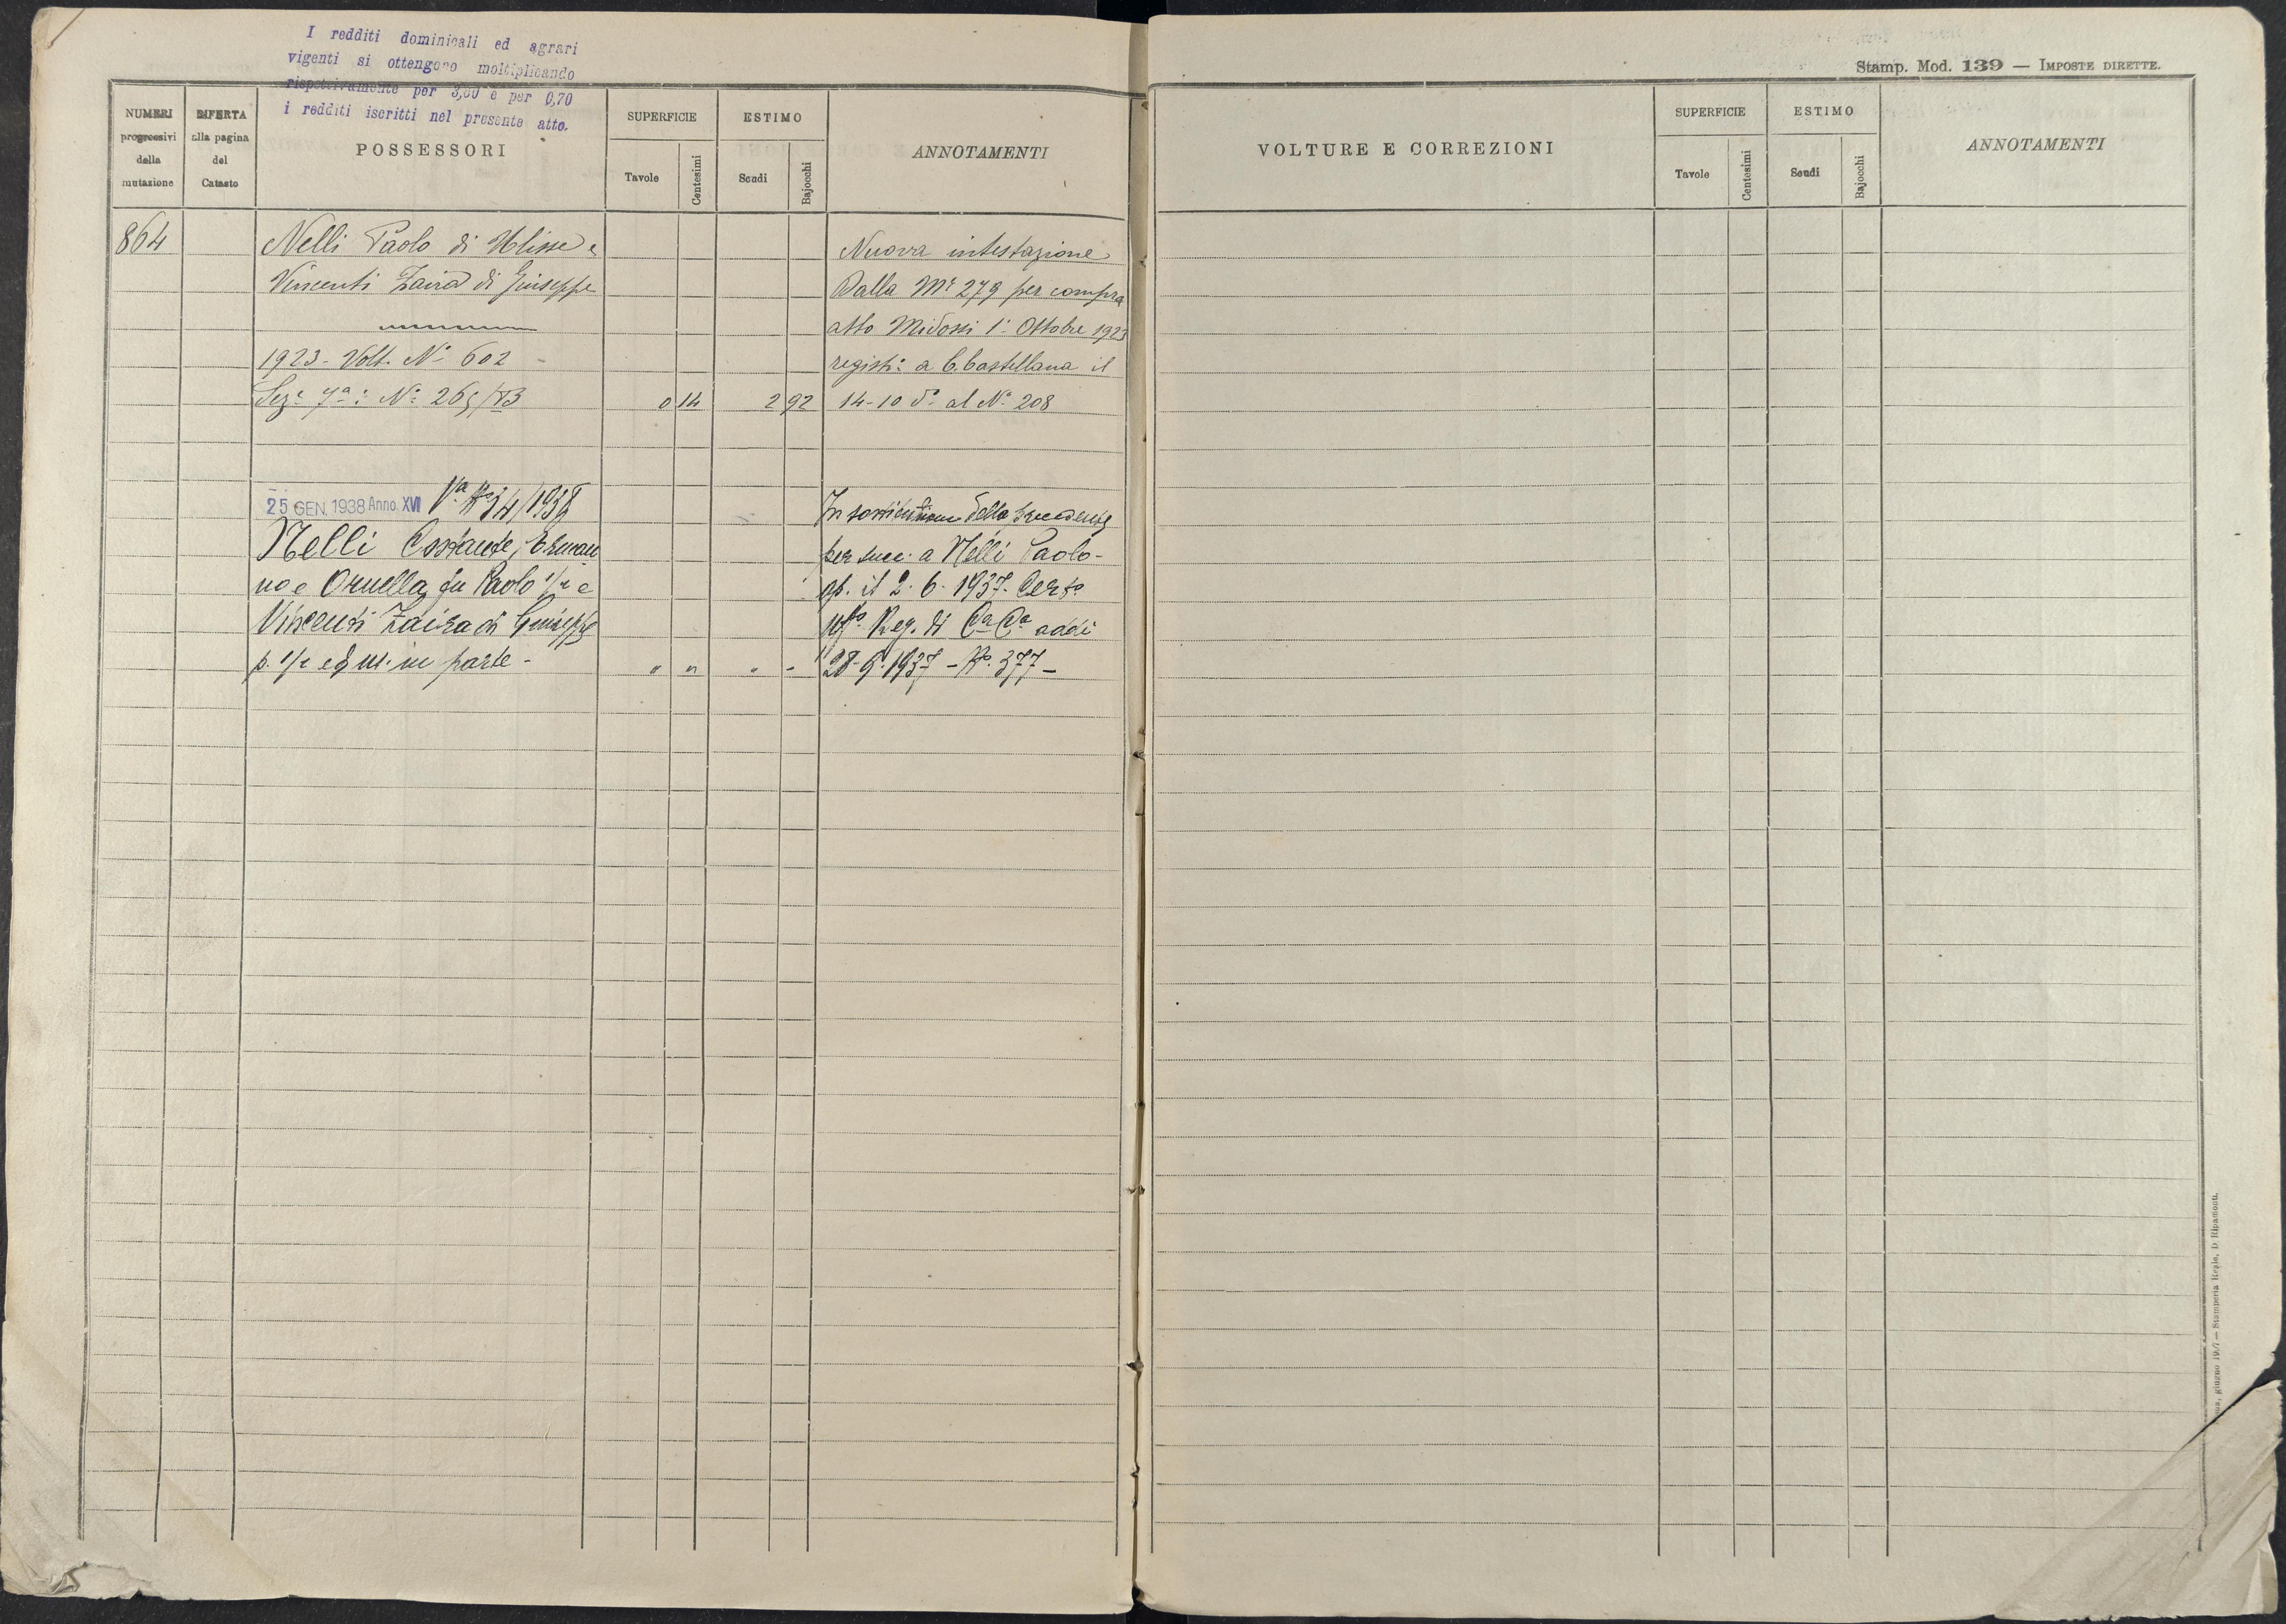 I redditi dominicali ed agrari
vigenti si ottengono moltiplicando
rispettivamente per 3,00 e per 0,70
i redditi iscritti nel presente atto.
Stamp. Mod. 139 — IMPOSTE DIRETTE.
NUMERI
progressivi
della
mutazione
RIFERTA
alla pagina
del
Catasto
POSSESSORI
SUPERFICIE
Tavole
Centesimi
ESTIMO
Scudi
Bajocchi
ANNOTAMENTI
VOLTURE E CORREZIONI
SUPERFICIE
Tavole
Centesimi
ESTIMO
Scudi
Bajocchi
ANNOTAMENTI
864 Nelli Paolo di Ulisse e Nuova intestazione
Vincenti Zaira di Giuseppe Dalla Mª 279 per compra
atto Midossi 1º Ottobre 1923
1923 - Volt. Nº 602 - regist: a C. Castellana il
Sez: 7ª: Nº 265/B 0 14 2 92 14-10 dº al Nº 208
25 GEN. 1938 Anno XVI Vª Nº 34/1938 In sostituzione della precedente
Nelli Costante, Erman per succ: a Nelli Paolo -
no e Ornella fu Paolo 1/2 e ap. il 2. 6. 1937. Certo
Vincenti Zaira di Giuseppe Uffº Reg. di Cª Cª addì
p. 1/2 ed in parte - " " " " 28-9-1937 - Nº. 377 -
giugno — Stamperia Reale, D. Ripamonti.